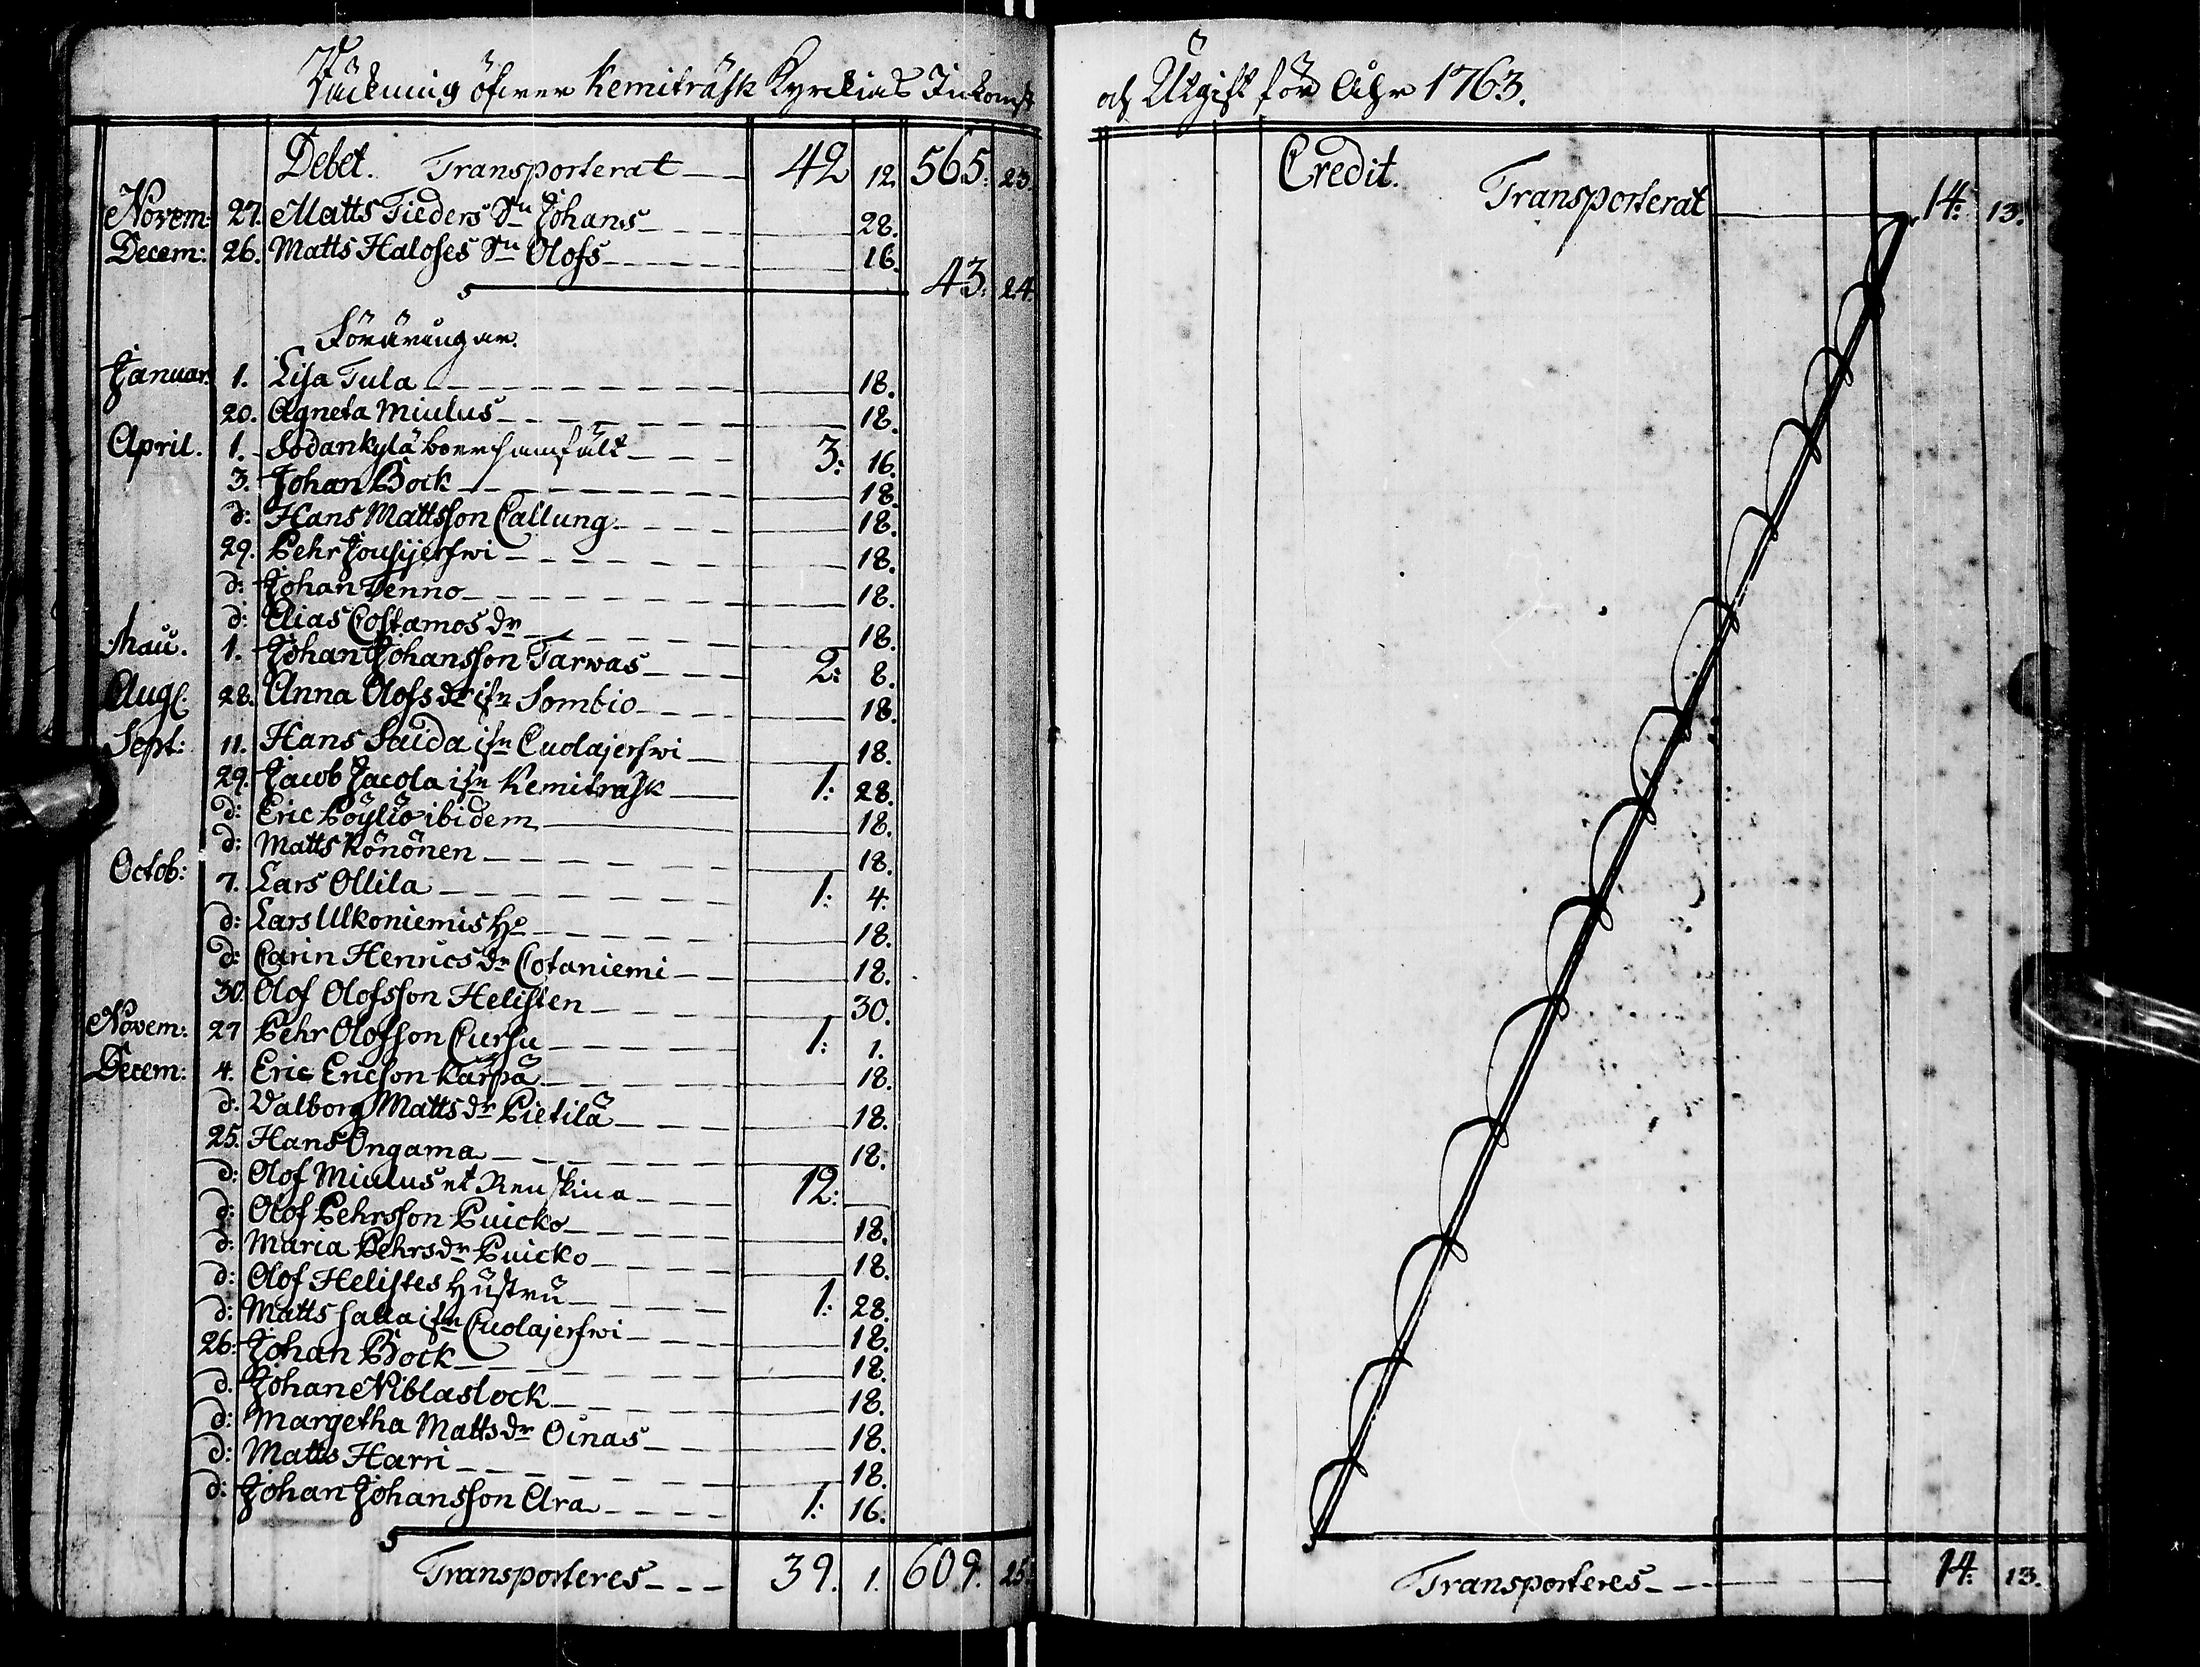 Räckning öfwer Kemiträsk Kyrckias Inkomst
Debet. Transporterat 42 12. 565: 23.
Novem: 27. Matts Tieders Sn Johans 28.
Decem: 26. Matts Haloses Sn Olofs 16.
43: 24.
Föräringar.
Januar. 1. Lisa Tula 18.
20. Agneta Miulus 18.
April. 1. Sodankylä boerssamfält 3: 16.
3. Johan Bock 18.
d: Hans Mattsson Callung 18.
29. Pehr Jousijerfwi 18.
d: Johan Tenno 18.
d: Elias Costamos dr 18.
Maii. 1. Johan Johansson Tarwas 2: 8.
Aug. 28. Anna Olofs dr ifrn Sombio 18.
Sept: 11. Hans Saida ifrn Cuolajerfwi 18.
29. Jacob Jacola ifrn Kemiträsk 1: 28.
d: Eric Pöyliö ibidem 18.
d: Matts Könönen 18.
Octob: 7. Lars Ollila 1: 4.
d: Lars Ulkoniemis Ho 18.
d: Carin Henrics dr Cotaniemi 18.
30. Olof Olofsson Helisten 30.
Novem: 27 Pehr Olofsson Cursu 1: 1.
Decem: 4. Eric Ericson Kärpä 18.
d: Valborg Matts dr Pietilä 18.
25. Hans Ongama 18.
d: Olof Miulus et 12:
d: Olof Pehrsson Puicko 18.
d: Maria Pehrs dr Puicko 18.
d: Olof Helistes Hustru 1: 28.
d: Matts Salla ifrn Cuolajerfwi 18.
26: Johan Bock 18.
d. Johan Niblastock 18.
d: Margetha Matts dr Oinas 18.
d: Matts Harri 18.
d: Johan Johansson Ara 1: 16.
Transporteres 39. 1. 609. 25.
och Utgift för Åhr 1763.
Credit. Transporterat 14: 13.
Transporteres 14: 13.